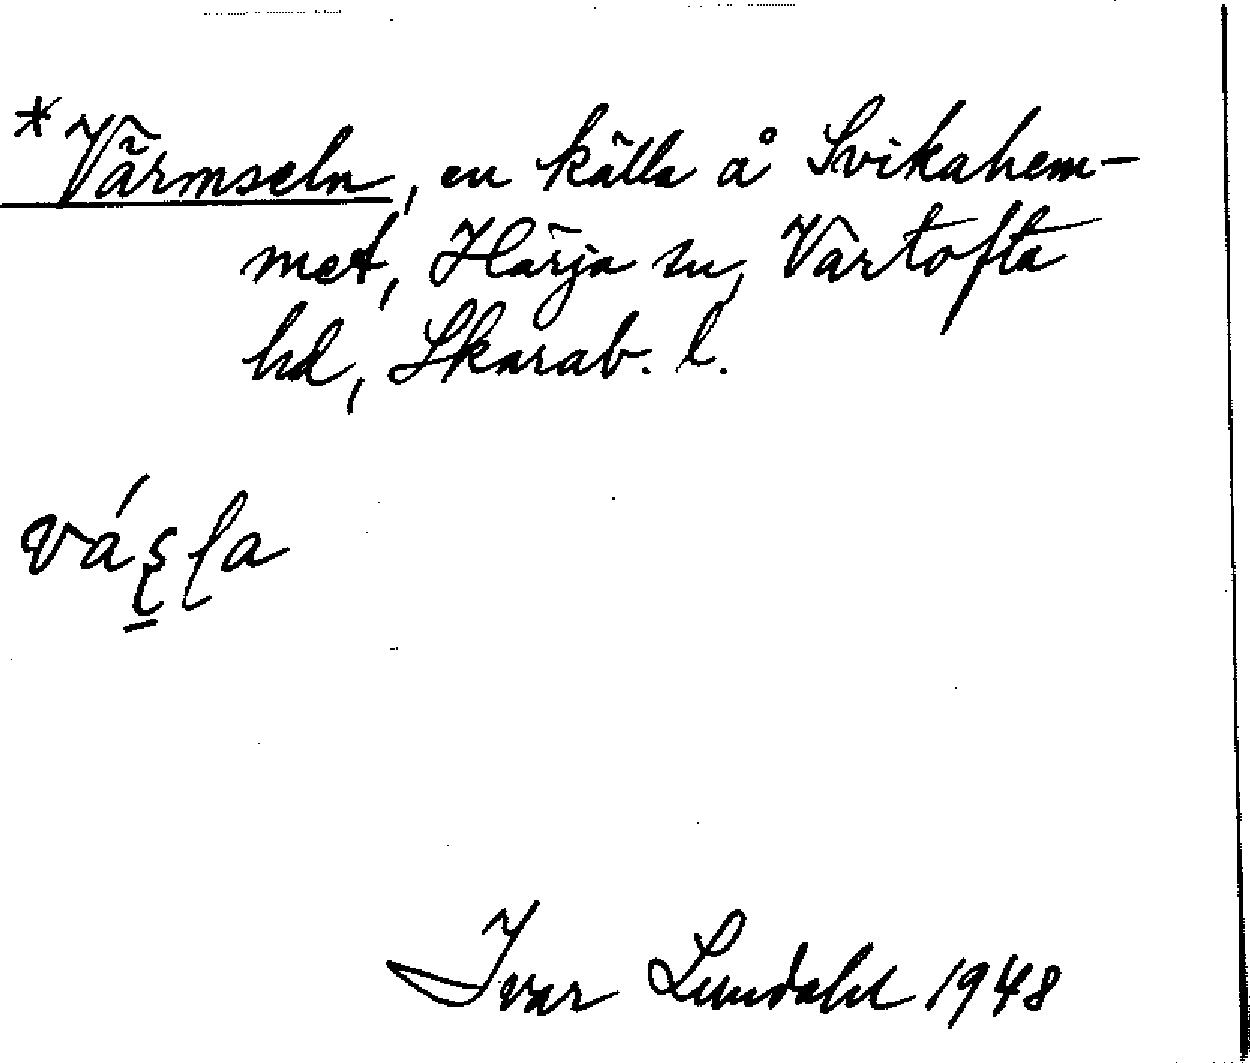 *Värmseln, en källa å Svikahem-
met, Härja sn, Vartofta
hd, Skarab. l.
Ivar Lundahl 1948